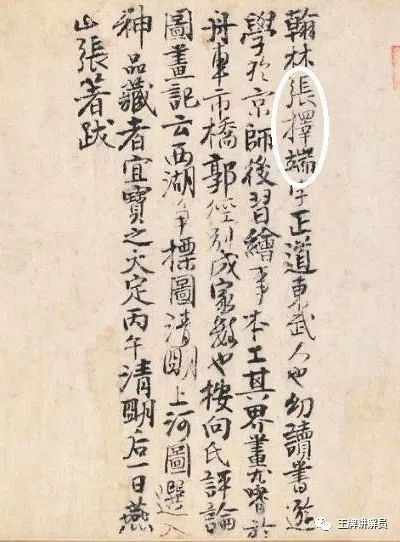 翰林張擇端字正道東武人也幼讀書遊
學於京師後習繪事本工其界畫尤嗜於
舟車市橋郭徑別成家數也按向氏評論
圖畫記云西湖爭標圖清明上河圖選入
神品藏者宜寶之大定丙午清明后一日燕
山張著跋
王牌讲解员